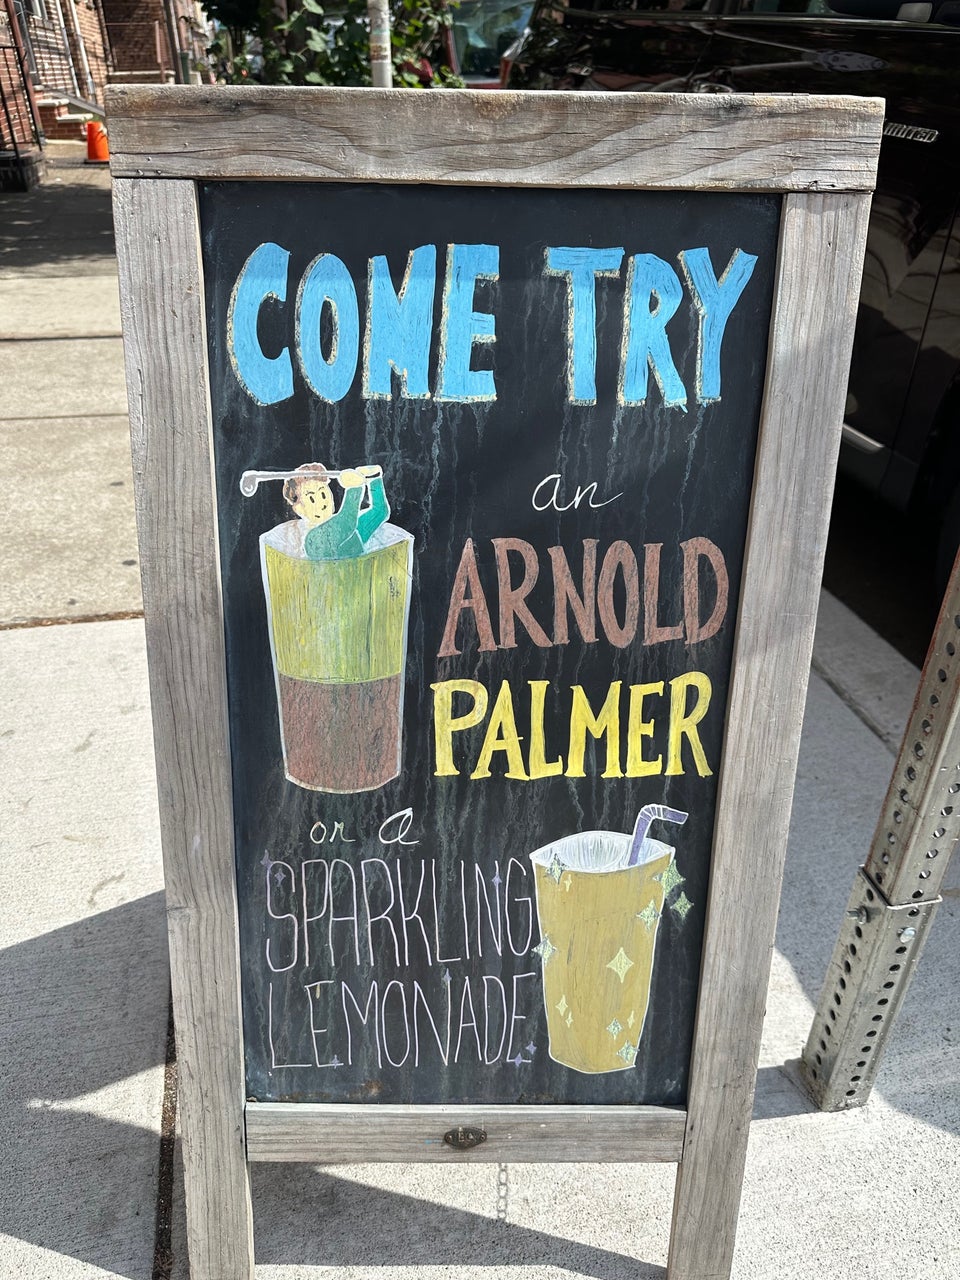 COME TRY
an
ARNOLD
PALMER
or a
SPARKLING
LEMONADE
LIMITED